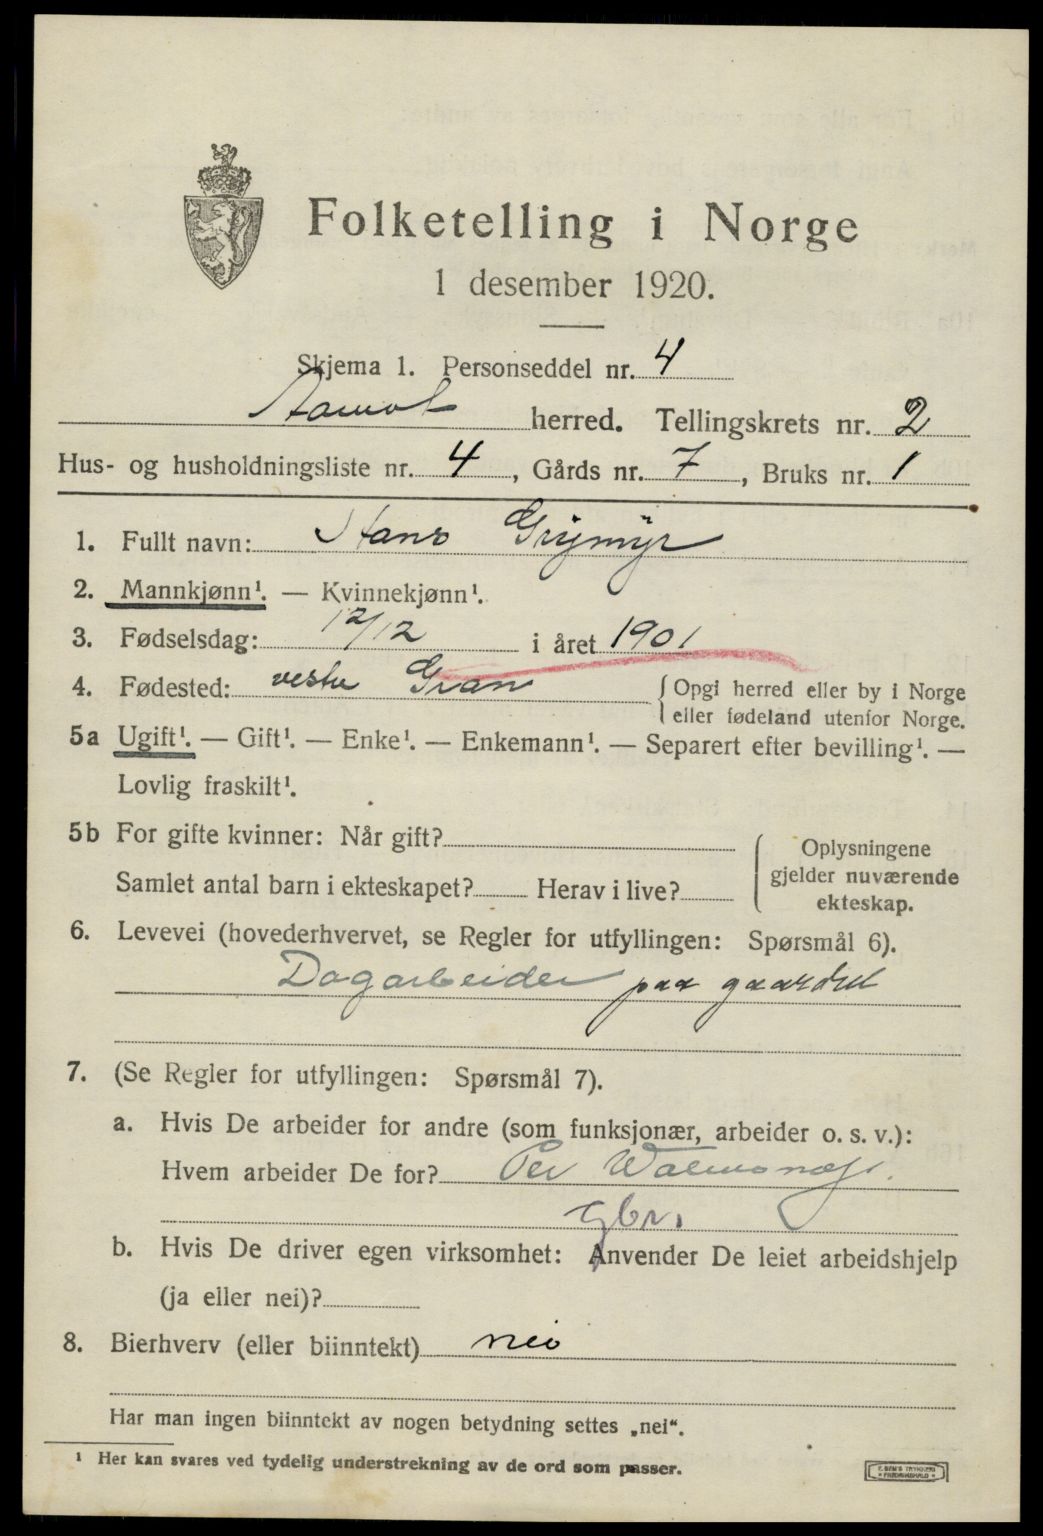 Folketelling i Norge
1 desember 1920.
Skjema 1. Personseddel nr. 4
Aamot herred. Tellingskrets nr. 2
Hus- og husholdningsliste nr. 4, Gårds nr. 7, Bruks nr. 1
1. Fullt navn: Hans Grymyr
2. Mannkjønn¹. — Kvinnekjønn¹.
3. Fødselsdag: 12/12 i året 1901
4. Fødested: vestre Gran { Opgi herred eller by i Norge
eller fødeland utenfor Norge.
5a Ugift¹. — Gift¹. — Enke¹. — Enkemann¹. — Separert efter bevilling¹. —
Lovlig fraskilt¹.
5b For gifte kvinner: Når gift?
Samlet antal barn i ekteskapet? Herav i live?
Oplysningene
gjelder nuværende
ekteskap.
6. Levevei (hovederhvervet, se Regler for utfyllingen: Spørsmål 6).
Dagarbeider paa gaarden
7. (Se Regler for utfyllingen: Spørsmål 7).
a. Hvis De arbeider for andre (som funksjonær, arbeider o. s. v.):
Hvem arbeider De for? Per
gbr.
b. Hvis De driver egen virksomhet: Anvender De leiet arbeidshjelp
(ja eller nei)?
8. Bierhverv (eller biinntekt) nei
Har man ingen biinntekt av nogen betydning settes „nei“.
¹ Her kan svares ved tydelig understrekning av de ord som passer.